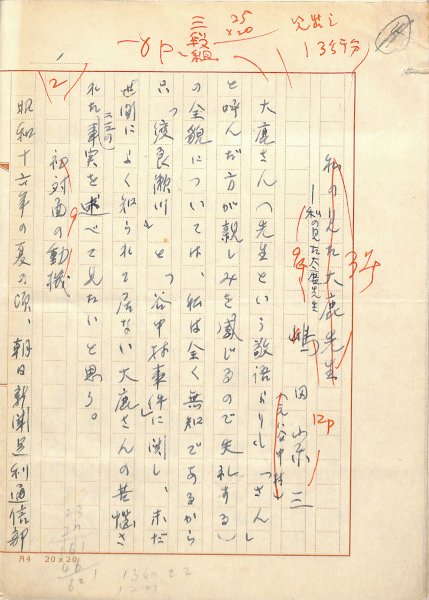 三段組
25×20
8P
13字分
私の見た大鹿先生
―私の見た大鹿先生
3行
嶋田宗三
12P
(元谷中村)
大鹿さん(先生という敬語より「さん」
と呼んだ方が親しみを感じるので失礼する)
の全貌については、私は全く無知であるから
只「渡良瀬川」と「谷中村事件」に関し、未だ
世間によく知られて居ない大鹿さんの苦悩さ
れた二三の事実を述べて見たいと思う。
(2)
初対面の動機
9
昭和十六年の夏の頃、朝日新聞足利通信部
A4 20×20